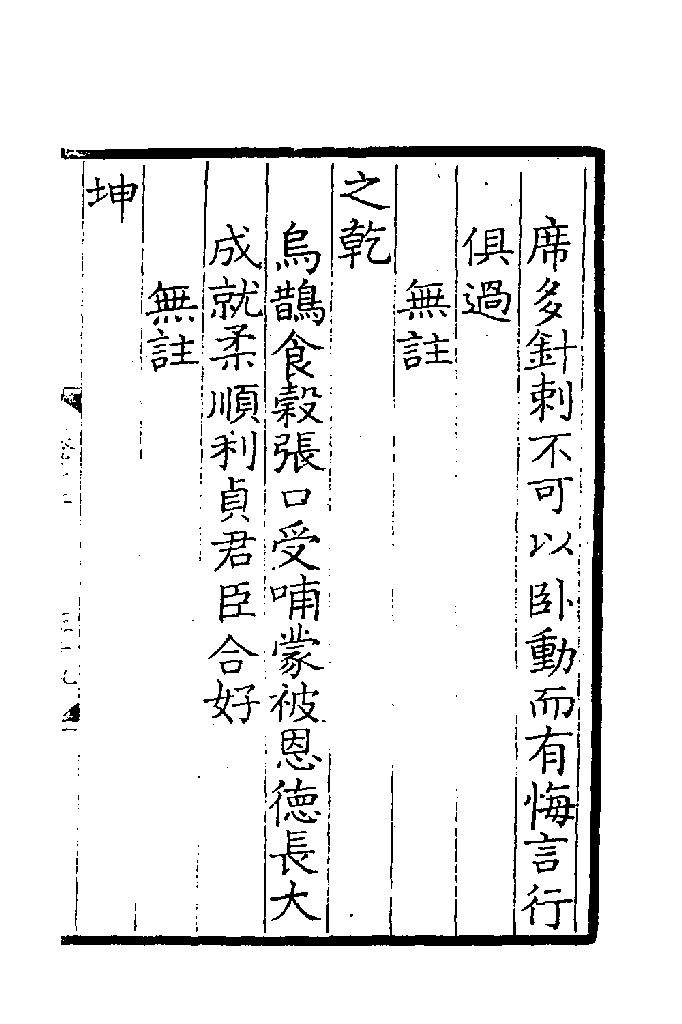 席多針刺不可以卧動而有悔言行
俱過
無註
之乾
烏鵲食穀張口受哺蒙被恩德長大
成就柔順利貞君臣合好
無註
坤